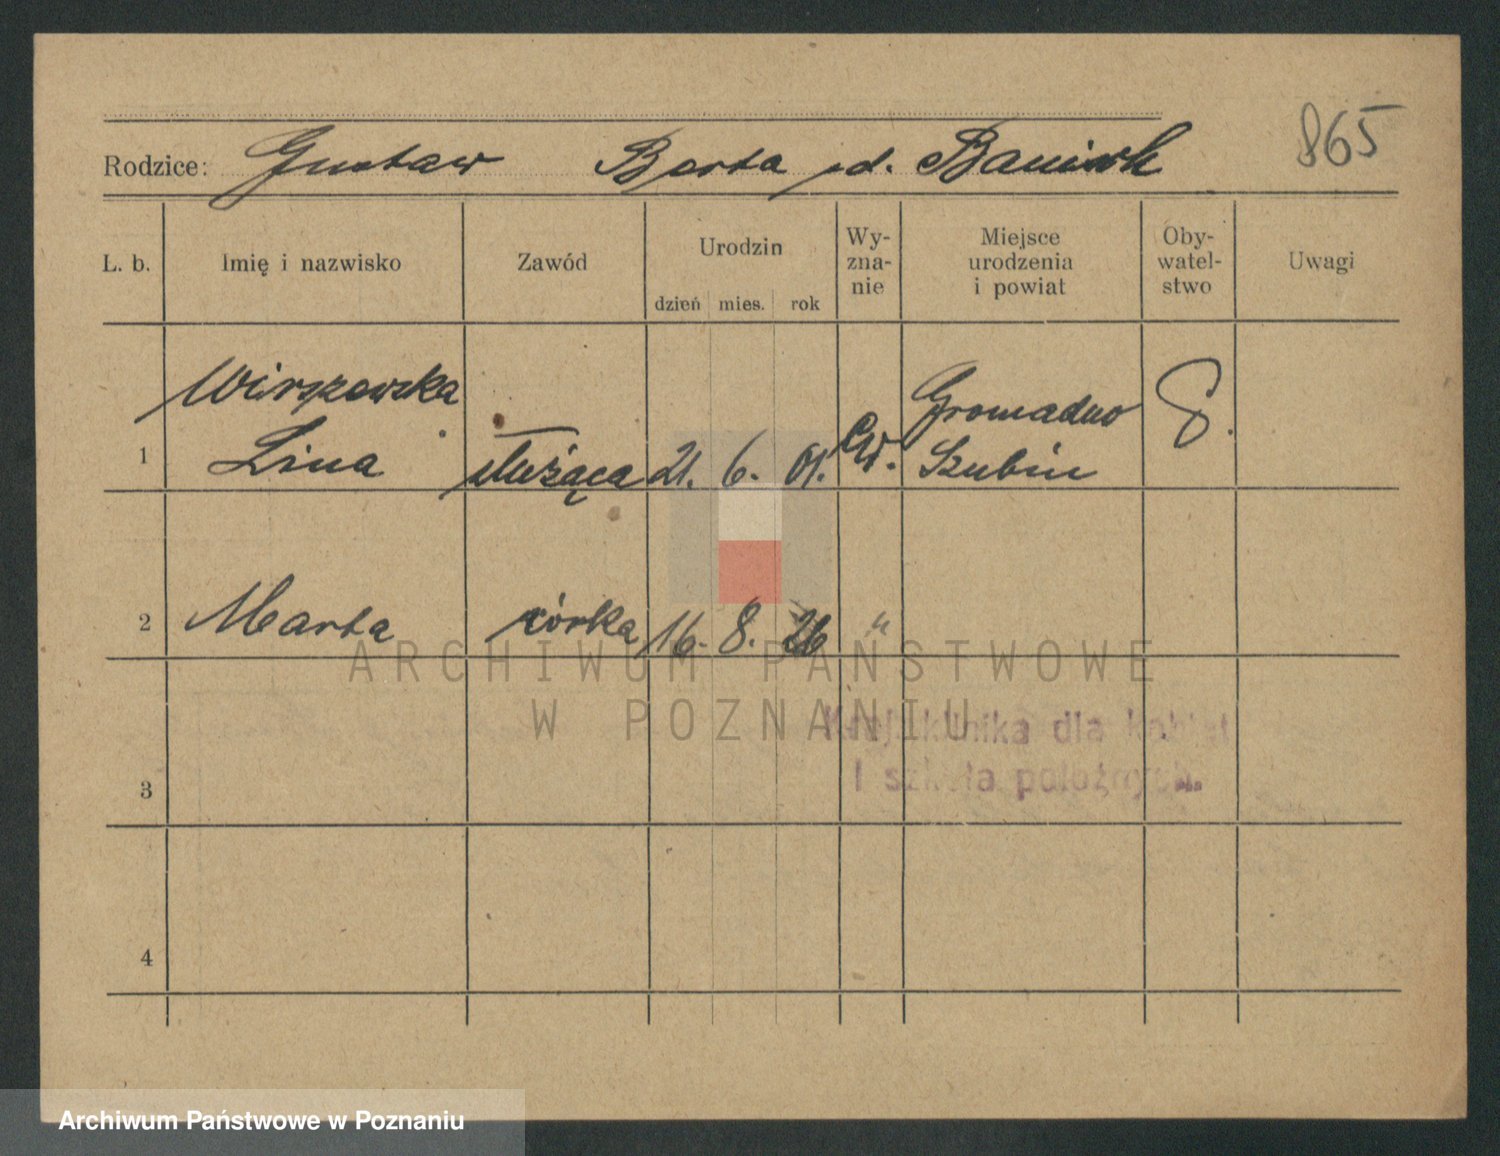 865
Rodzice: Gustaw Berta
L. b. Imię i nazwisko Zawód Urodzin dzień mies. rok Wy-zna-nie Miejsce urodzenia i powiat Oby-watel-stwo Uwagi
Wirszewska Gromadno
1 Lina służąca 21. 6. 01. Ew. Szubin
2 Marta córka 16. 8. 26 "
ARCHIWUM PAŃSTWOWE
W POZNANIU
Kraj. klinika dla kobiet
I szkoła położnych.
3
4
Archiwum Państwowe w Poznaniu